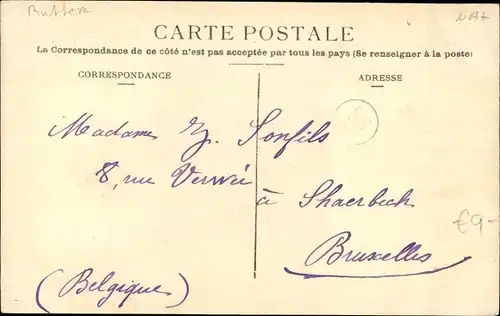 Buttera
CARTE POSTALE
La Correspondance de ce côté n'est pas acceptée par tous les pays (Se renseigner à la poste)
CORRESPONDANCE
ADRESSE
Madame Sonfils
8, rue Verwée
à Shaerbeck
Bruxelles
(Belgique)
€9-